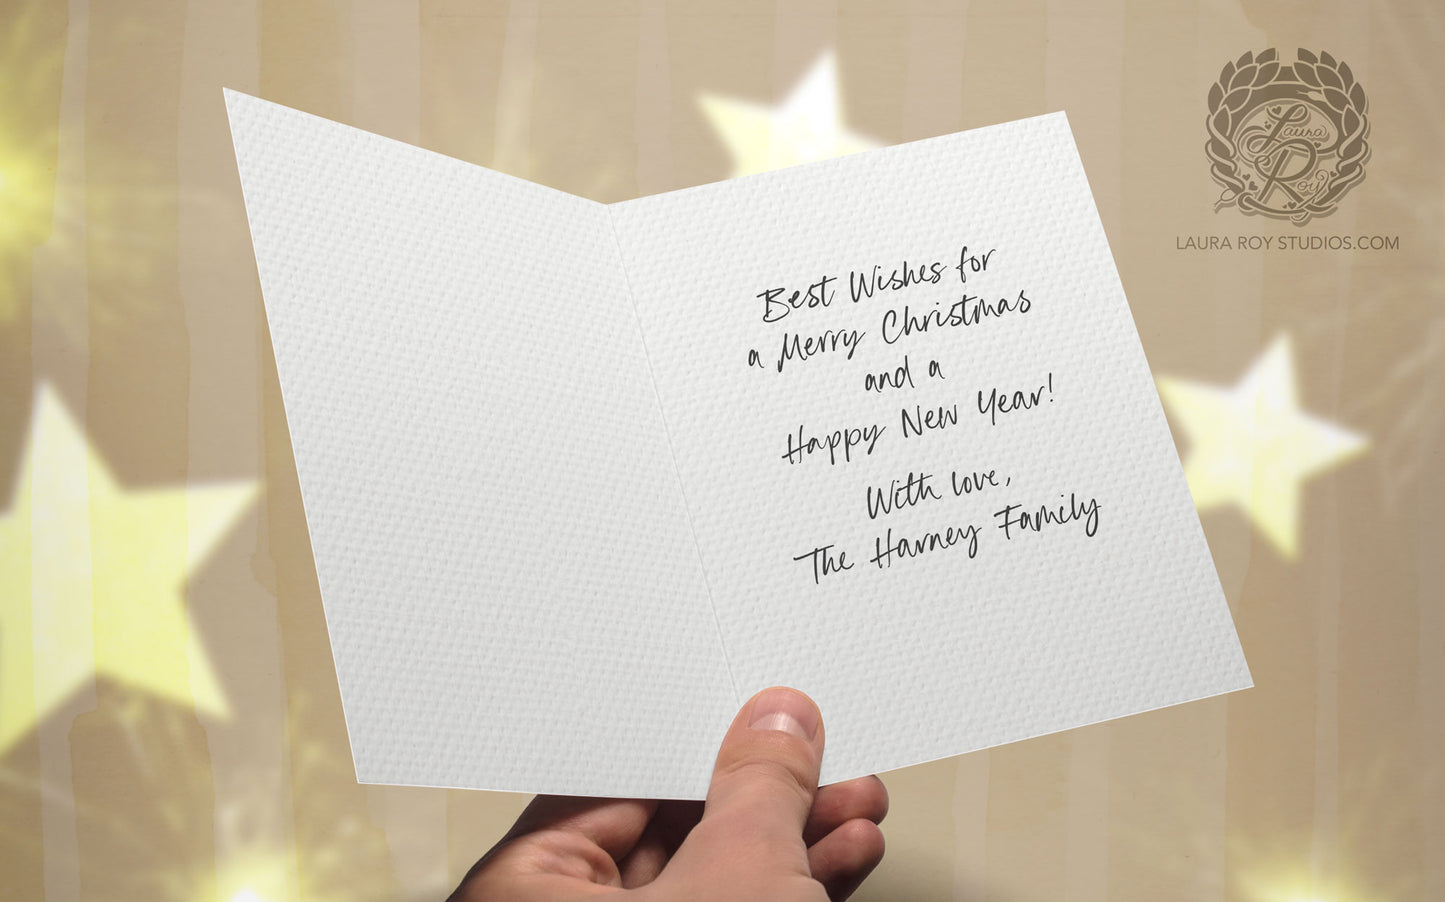 Laura
Roy
LAURA ROY STUDIOS.COM
Best Wishes for
a Merry Christmas
and a
Happy New Year!
With love,
The Harney Family